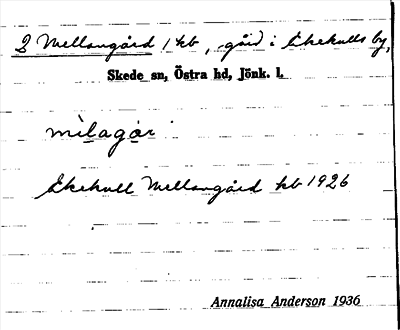 2 Mellangård 1 kb, gård i Ekekulls by,
Skede sn, Östra hd, Jönk. l.
mìlagɑr
Ekekull Mellangård kb 1926
Annalisa Anderson 1936